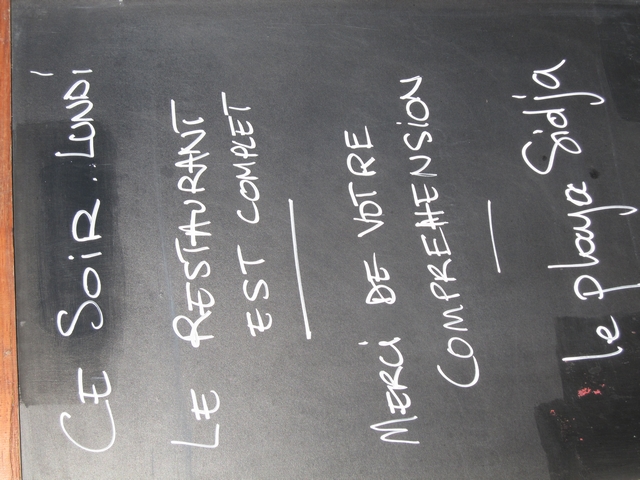 CE SOIR. LUNDI
LE RESTAURANT
EST COMPLET
MERCI DE VOTRE
COMPREHENSION
le playa Sidja